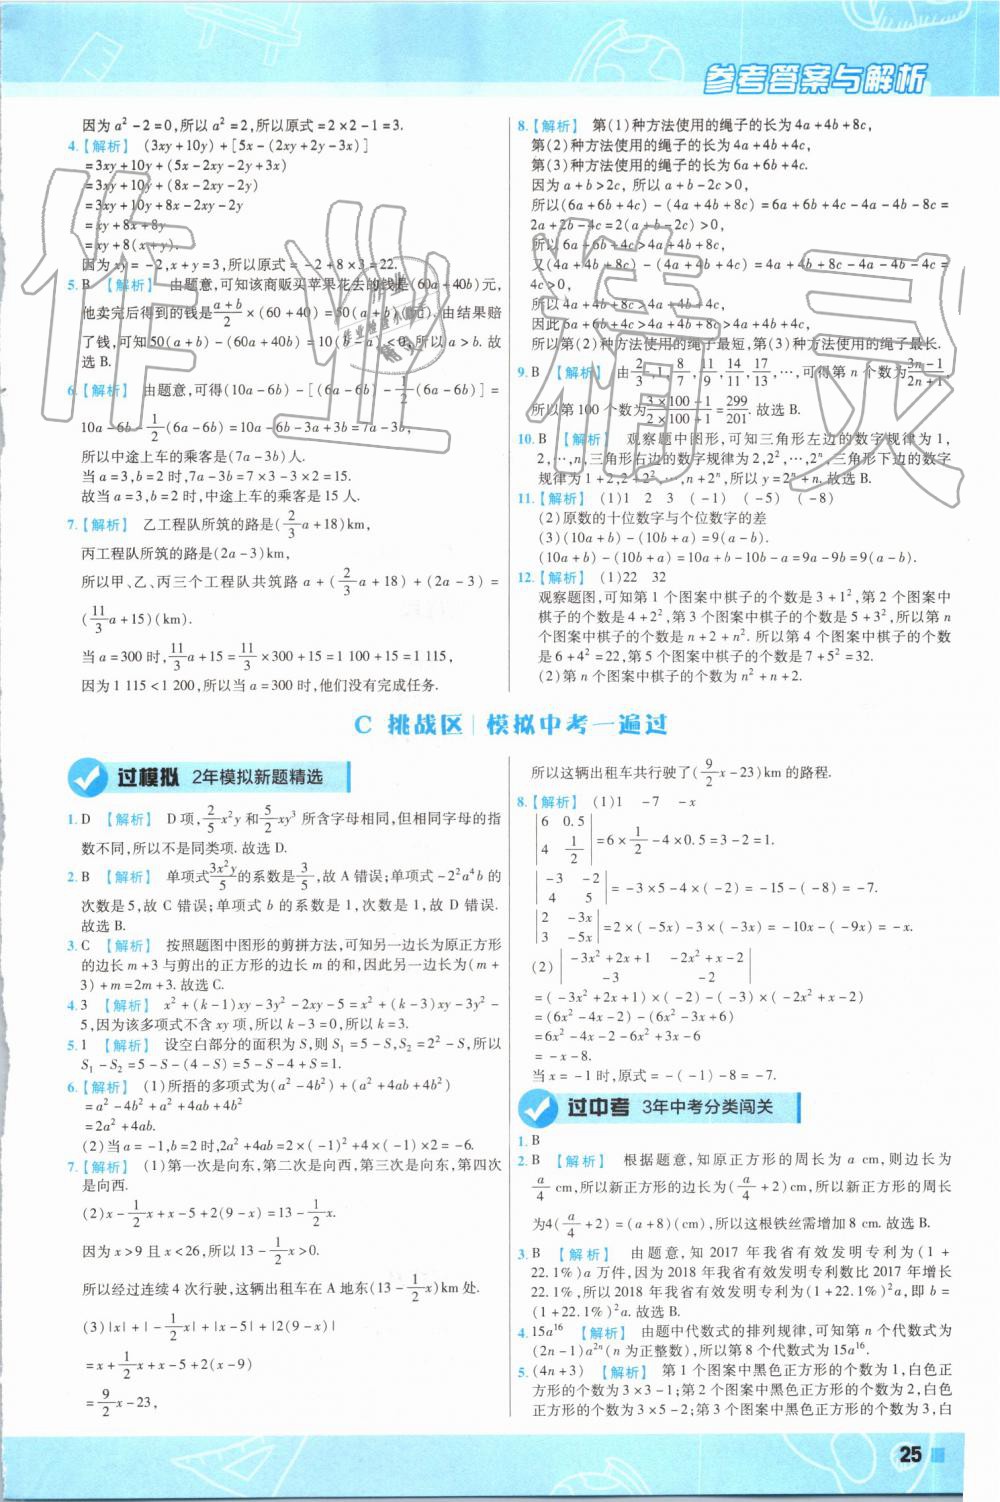 参考答案与解析
因为a²-2=0,所以a²=2,所以原式=2×2-1=3.
4.【解析】 (3xy+10y)+[5x-(2xy+2y-3x)]
=3xy+10y+(5x-2xy-2y+3x)
=3xy+10y+(8x-2xy-2y)
=3xy+10y+8x-2xy-2y
=xy+8x+8y
=xy+8(x+y).
因为xy=-2,x+y=3,所以原式=-2+8×3=22.
5. B 【解析】 由题意,可知该商贩买苹果花去的钱是(60a+40b)元,
他卖完后得到的钱是(a+b)/2×(60+40)=50(a+b)(元). 由结果赔
了钱,可知50(a+b)-(60a+40b)=10(b-a)<0,所以a>b. 故
选B.
6.【解析】 由题意,可得(10a-6b)-[(6a-6b)-1/2(6a-6b)]=
10a-6b-1/2(6a-6b)=10a-6b-3a+3b=7a-3b,
所以中途上车的乘客是(7a-3b)人.
当a=3,b=2时,7a-3b=7×3-3×2=15.
故当a=3,b=2时,中途上车的乘客是15人.
7.【解析】 乙工程队所筑的路是(2/3a+18)km,
丙工程队所筑的路是(2a-3)km,
所以甲、乙、丙三个工程队共筑路a+(2/3a+18)+(2a-3)=
(11/3a+15)(km).
当a=300时,11/3a+15=11/3×300+15=1 100+15=1 115,
因为1 115<1 200,所以当a=300时,他们没有完成任务.
8.【解析】 第(1)种方法使用的绳子的长为4a+4b+8c,
第(2)种方法使用的绳子的长为4a+4b+4c,
第(3)种方法使用的绳子的长为6a+6b+4c.
因为a+b>2c, 所以a+b-2c>0,
所以(6a+6b+4c)-(4a+4b+8c)=6a+6b+4c-4a-4b-8c=
2a+2b-4c=2(a+b-2c)>0,
所以6a+6b+4c>4a+4b+8c,
又(4a+4b+8c)-(4a+4b+4c)=4a+4b+8c-4a-4b-4c=
4c>0,
所以4a+4b+8c>4a+4b+4c,
因此6a+6b+4c>4a+4b+8c>4a+4b+4c,
所以第(2)种方法使用的绳子最短,第(3)种方法使用的绳子最长.
9. B 【解析】 由2/3,1,8/7,11/9,14/11,17/13,…,可得第n个数为(3n-1)/(2n+1),
所以第100个数为(3×100-1)/(2×100+1)=299/201. 故选B.
10. B 【解析】 观察题中图形,可知三角形左边的数字规律为1,
2,…,n,三角形右边的数字规律为2,2²,…,2ⁿ,三角形下边的数字
规律为1+2,2+2²,…,n+2ⁿ,所以y=2ⁿ+n. 故选B.
11.【解析】 (1)1 2 3 (-1) (-5) (-8)
(2)原数的十位数字与个位数字的差
(3)(10a+b)-(10b+a)=9(a-b).
(10a+b)-(10b+a)=10a+b-10b-a=9a-9b=9(a-b).
12.【解析】 (1)22 32
观察题图,可知第1个图案中棋子的个数是3+1²,第2个图案中
棋子的个数是4+2²,第3个图案中棋子的个数是5+3²,所以第n
个图案中棋子的个数是n+2+n². 所以第4个图案中棋子的个数
是6+4²=22,第5个图案中棋子的个数是7+5²=32.
(2)第n个图案中棋子的个数为n²+n+2.
C 挑战区|模拟中考一遍过
过模拟 2年模拟新题精选
1. D 【解析】 D项,2/5x²y和5/2xy³所含字母相同,但相同字母的指
数不同,所以不是同类项. 故选D.
2. B 【解析】 单项式3x²y/5的系数是3/5,故A错误;单项式-2²a⁴b的
次数是5,故C错误;单项式b的系数是1,次数是1,故D错误.
故选B.
3. C 【解析】 按照题图中图形的剪拼方法,可知另一边长为原正方形
的边长m+3与剪出的正方形的边长m的和,因此另一边长为(m+
3)+m=2m+3. 故选C.
4. 3 【解析】 x²+(k-1)xy-3y²-2xy-5=x²+(k-3)xy-3y²-
5,因为该多项式不含xy项,所以k-3=0,所以k=3.
5. 1 【解析】 设空白部分的面积为S,则S₁=5-S,S₂=2²-S,所以
S₁-S₂=5-S-(4-S)=5-S-4+S=1.
6.【解析】 (1)所捂的多项式为(a²-4b²)+(a²+4ab+4b²)
=a²-4b²+a²+4ab+4b²
=2a²+4ab.
(2)当a=-1,b=2时,2a²+4ab=2×(-1)²+4×(-1)×2=-6.
7.【解析】 (1)第一次是向东,第二次是向西,第三次是向东,第四次
是向西.
(2)x-1/2x+x-5+2(9-x)=13-1/2x.
因为x>9且x<26,所以13-1/2x>0.
所以经过连续4次行驶,这辆出租车在A地东(13-1/2x)km处.
(3)|x|+|-1/2x|+|x-5|+|2(9-x)|
=x+1/2x+x-5+2(x-9)
=9/2x-23,
所以这辆出租车共行驶了(9/2x-23)km的路程.
8.【解析】 (1)1 -7 -x
|6 0.5|
|4 1/2|=6×1/2-4×0.5=3-2=1.
|-3 -2|
|4 5|=-3×5-4×(-2)=-15-(-8)=-7.
|2 -3x|
|3 -5x|=2×(-5x)-3×(-3x)=-10x-(-9x)=-x.
(2)|-3x²+2x+1 -2x²+x-2|
|-3 -2|
=(-3x²+2x+1)×(-2)-(-3)×(-2x²+x-2)
=(6x²-4x-2)-(6x²-3x+6)
=6x²-4x-2-6x²+3x-6
=-x-8.
当x=-1时,原式=-(-1)-8=-7.
过中考 3年中考分类闯关
1. B
2. B 【解析】 根据题意,知原正方形的周长为a cm,则边长为
a/4 cm,所以新正方形的边长为(a/4+2)cm,所以新正方形的周长
为4(a/4+2)=(a+8)(cm),所以这根铁丝需增加8 cm. 故选B.
3. B 【解析】 由题意,知2017年我省有效发明专利为(1+
22.1%)a万件,因为2018年我省有效发明专利数比2017年增长
22.1%,所以2018年我省有效发明专利为(1+22.1%)²a,即b=
(1+22.1%)²a. 故选B.
4. 15a¹⁶ 【解析】 由题中代数式的排列规律,可知第n个代数式为
(2n-1)a²ⁿ(n为正整数),所以第8个代数式为15a¹⁶.
5. (4n+3) 【解析】 第1个图案中黑色正方形的个数为1,白色正
方形的个数为3×3-1;第2个图案中黑色正方形的个数为2,白色
正方形的个数为3×5-2;第3个图案中黑色正方形的个数为3,白
25
作业精灵